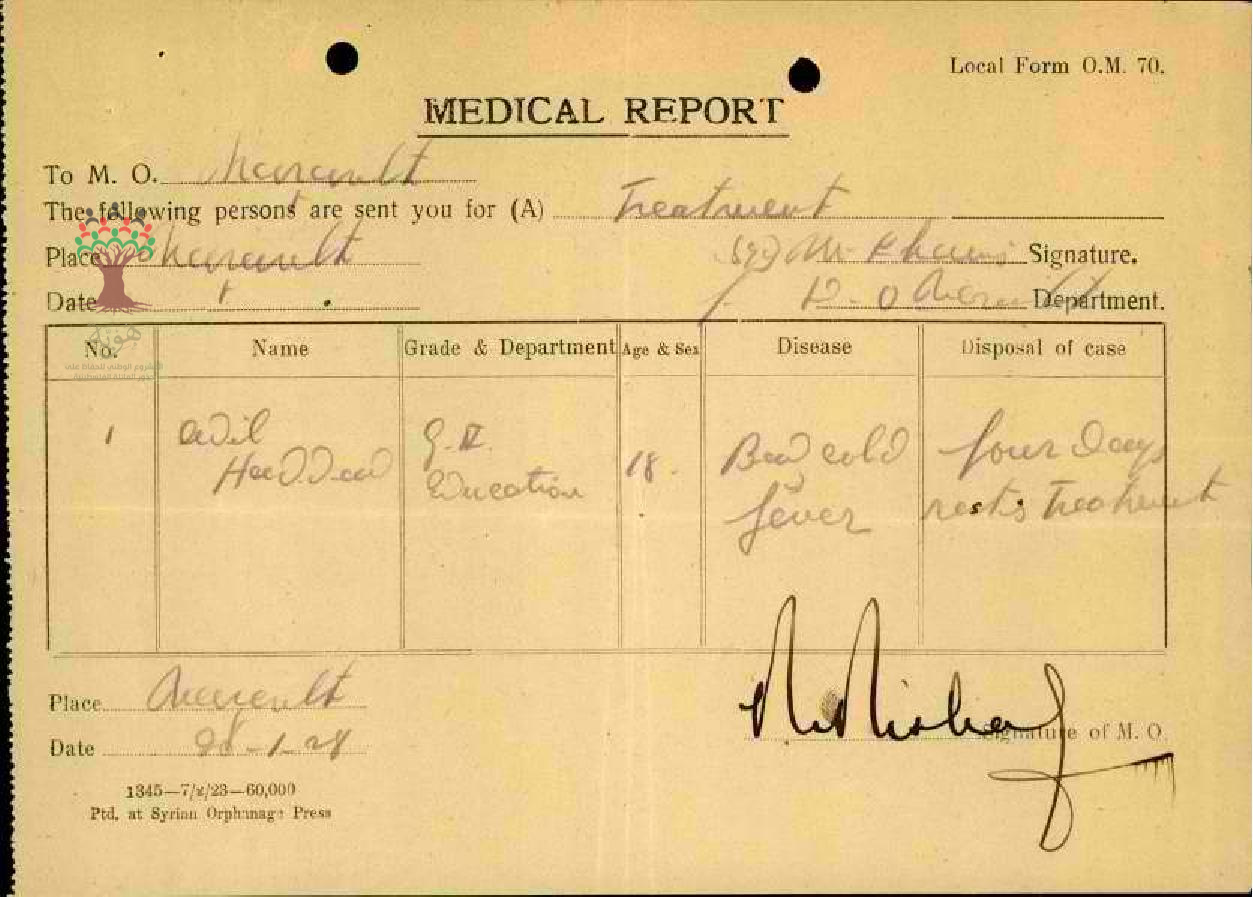 Local Form O.M. 70.
MEDICAL REPORT
To M. O.
The following persons are sent you for (A) Treatment
Place Signature.
Date Department.
No. Name Grade & Department Age & Sex Disease Disposal of case
1 Adil G. II. 18. Bad cold four days
Haddad Education fever rest & Treatment
Place
Date 28-1-28 Signature of M. O.
1345—7/x/23—60,000
Ptd. at Syrian Orphanage Press